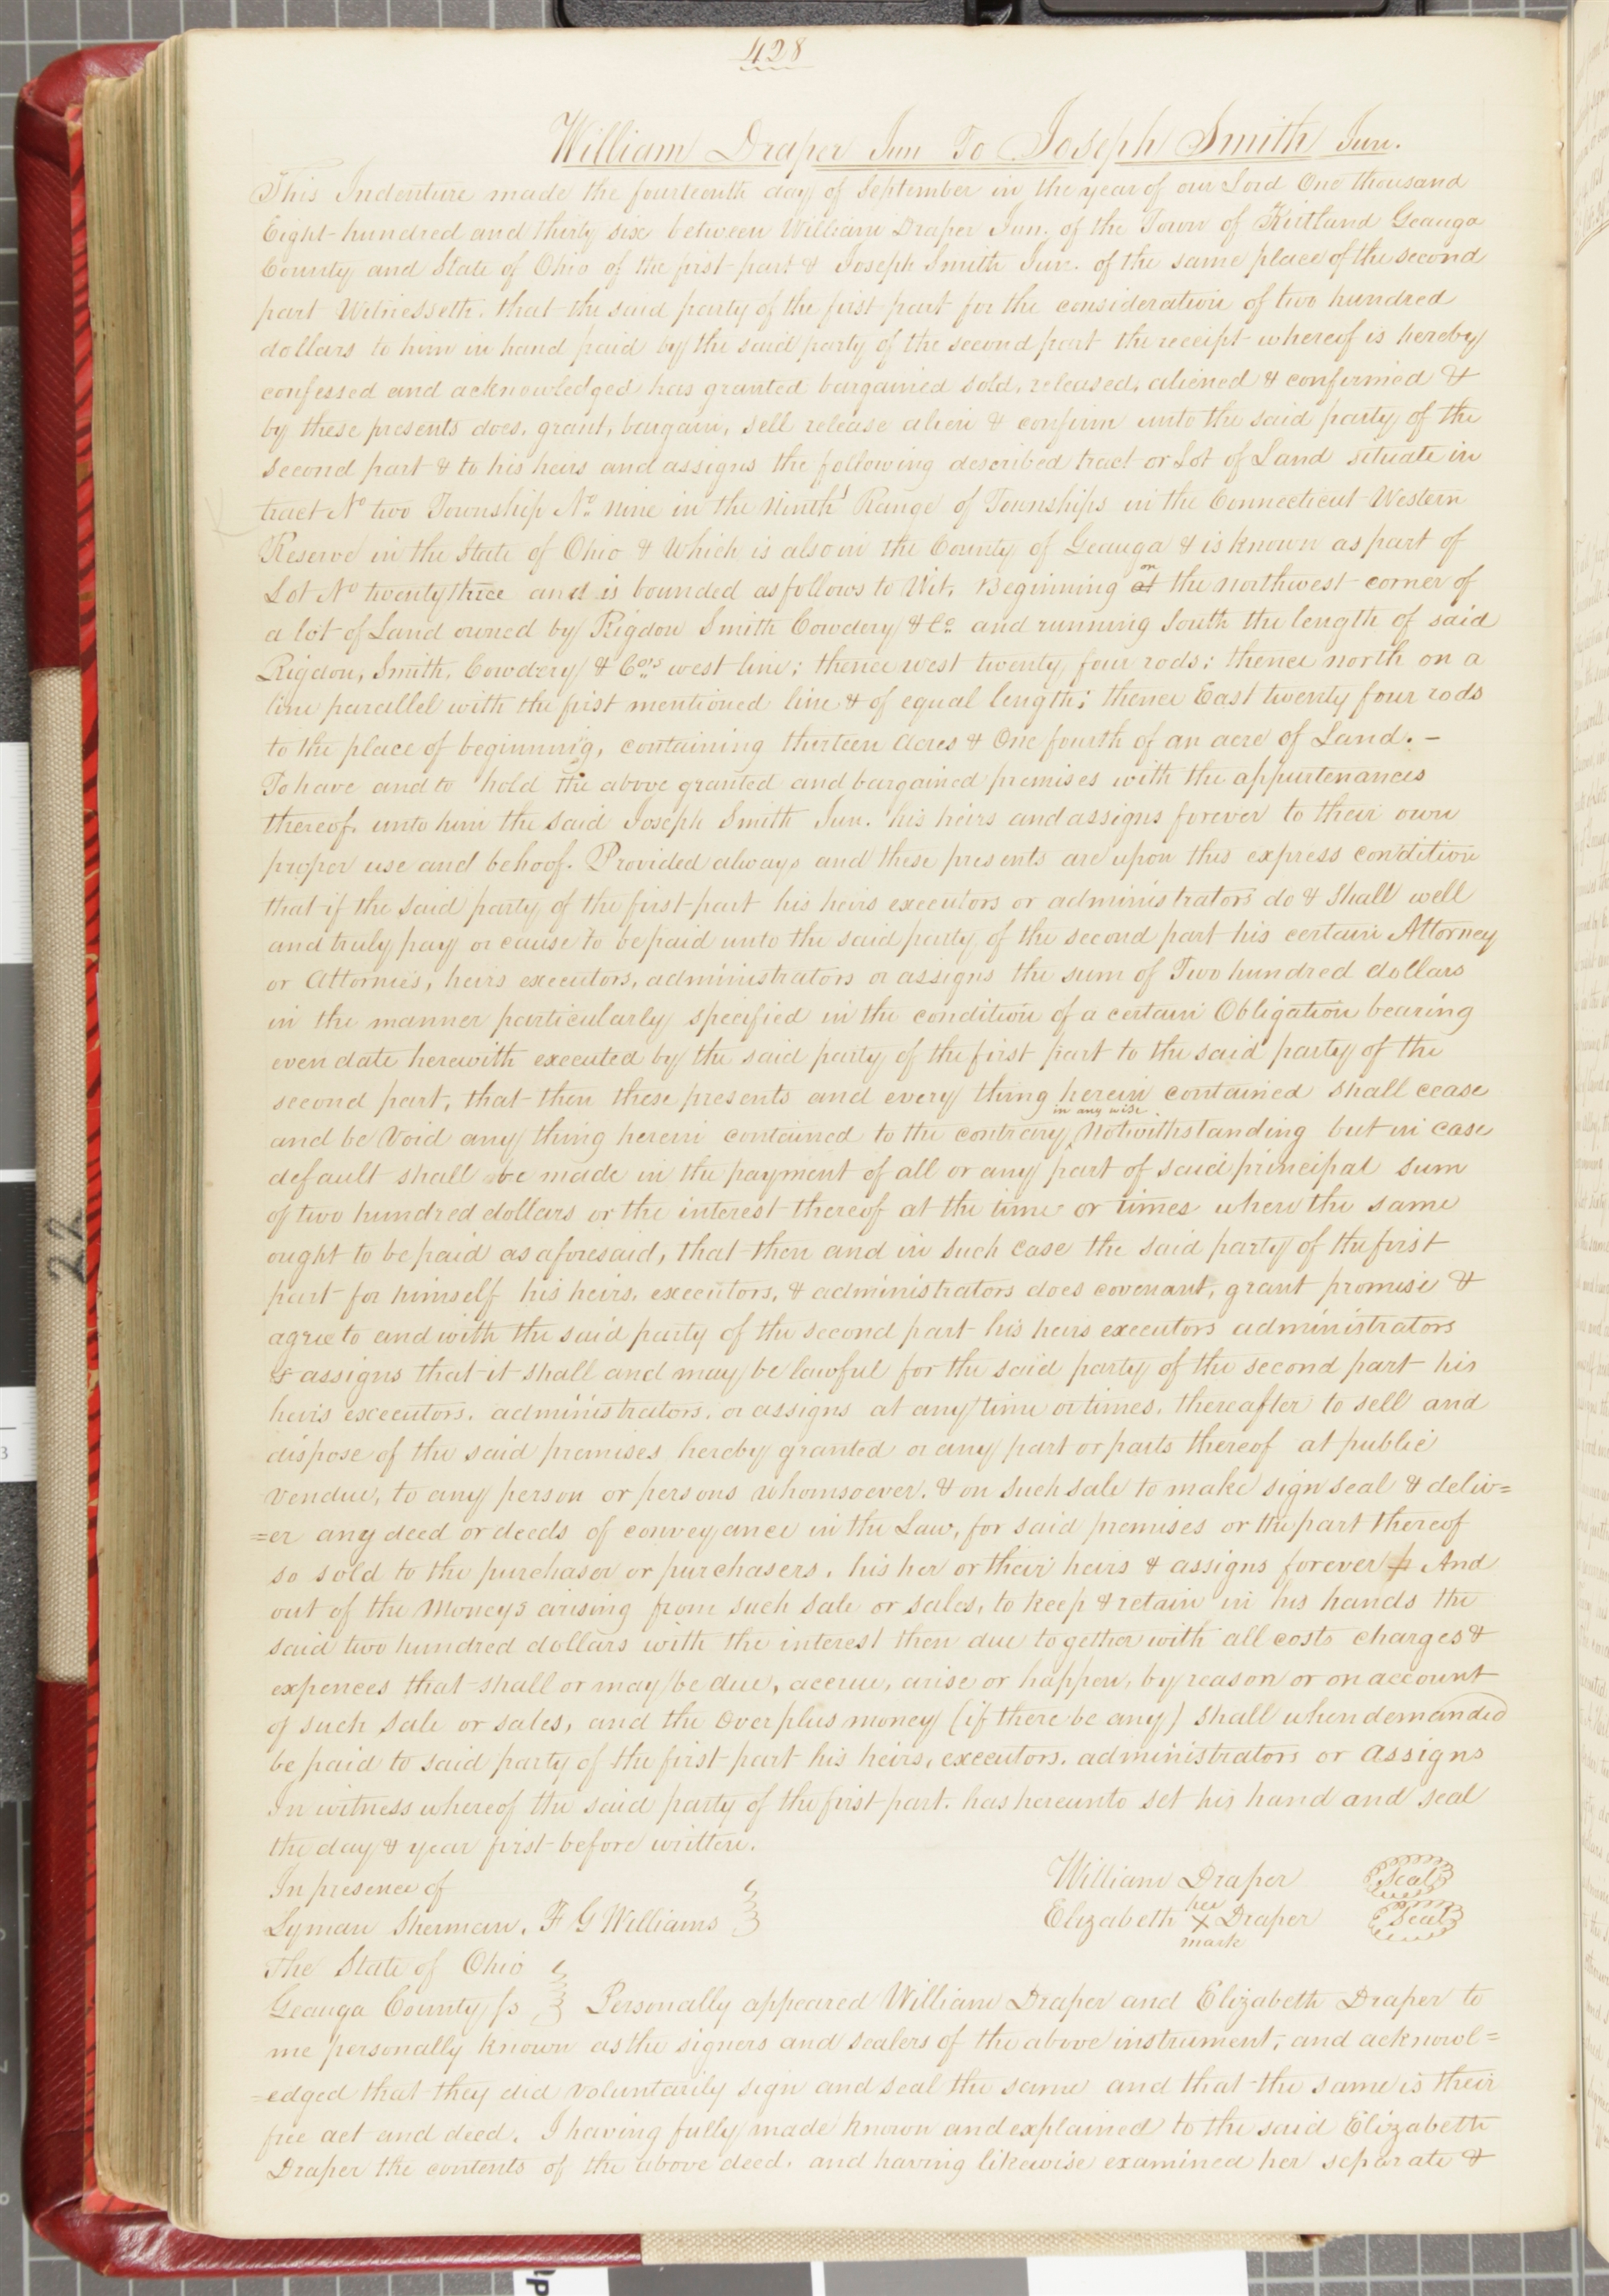 428
William Draper Jun To Joseph Smith Jun.
This Indenture made the fourteenth day of September in the year of our Lord One thousand
Eight hundred and thirty six between William Draper Jun. of the Town of Kirtland Geauga
County and State of Ohio of the first part & Joseph Smith Jun. of the same place of the second
part Witnesseth. that the said party of the first part for the consideration of two hundred
dollars to him in hand paid by the said party of the second part the receipt whereof is hereby
confessed and acknowledged has granted bargained sold, released, aliened & confirmed &
by these presents does, grant, bargain, sell release alien & confirm unto the said party of the
second part & to his heirs and assigns the following described tract or Lot of Land situate in
tract No two Township No. nine in the Ninth Range of Townships in the Connecticut Western
Reserve in the State of Ohio & Which is also in the County of Geauga & is known as part of
on
Lot No twenty three and is bounded as follows to Wit, Beginning at the northwest corner of
a lot of Land owned by Rigdon Smith Cowdery & Co. and running South the length of said
Rigdon, Smith, Cowdery & Co.'s west line; thence west twenty four rods; thence north on a
line parallel with the first mentioned line & of equal length; thence East twenty four rods
to the place of beginning, containing thirteen Acres & One fourth of an acre of Land. -
To have and to hold the above granted and bargained premises with the appurtenances
thereof, unto him the said Joseph Smith Jun. his heirs and assigns forever to their own
proper use and behoof. Provided always and these presents are upon this express condition
that if the said party of the first part his heirs executors or administrators do & shall well
and truly pay or cause to be paid unto the said party of the second part his certain Attorney
or Attornies, heirs executors, administrators or assigns the sum of Two hundred dollars
in the manner particularly specified in the condition of a certain Obligation bearing
even date herewith executed by the said party of the first part to the said party of the
second part, that then these presents and every thing herein contained shall cease
in any wise
and be Void any thing herein contained to the contrary Notwithstanding but in case
default shall be made in the payment of all or any part of said principal sum
of two hundred dollars or the interest thereof at the time or times when the same
ought to be paid as aforesaid, that then and in such case the said party of the first
part for himself his heirs, executors, & administrators does covenant, grant promise &
agree to and with the said party of the second part his heirs executors administrators
& assigns that it shall and may be lawful for the said party of the second part his
heirs executors, administrators, or assigns at any time or times, thereafter to sell and
dispose of the said premises hereby granted or any part or parts thereof at public
vendue, to any person or persons whomsoever. & on such sale to make sign seal & deliv=
=er any deed or deeds of conveyance in the Law, for said premises or the part thereof
so sold to the purchaser or purchasers, his her or their heirs & assigns forever And
out of the Moneys arising from such sale or sales, to keep & retain in his hands the
said two hundred dollars with the interest then due together with all costs charges &
expences that shall or may be due, accrue, arise or happen, by reason or on account
of such sale or sales, and the Overplus money (if there be any) shall when demanded
be paid to said party of the first part his heirs, executors, administrators or assigns
In witness whereof the said party of the first part. has hereunto set his hand and seal
the day & year first before written.
In presence of
William Draper Seal
her
Lyman Sherman, F G Williams Elizabeth X Draper Seal
mark
The State of Ohio
Geauga County ss Personally appeared William Draper and Elizabeth Draper to
me personally known as the signers and sealers of the above instrument, and acknowl=
=edged that they did voluntarily sign and seal the same and that the same is their
free act and deed. I having fully made known and explained to the said Elizabeth
Draper the contents of the above deed, and having likewise examined her separate &
22